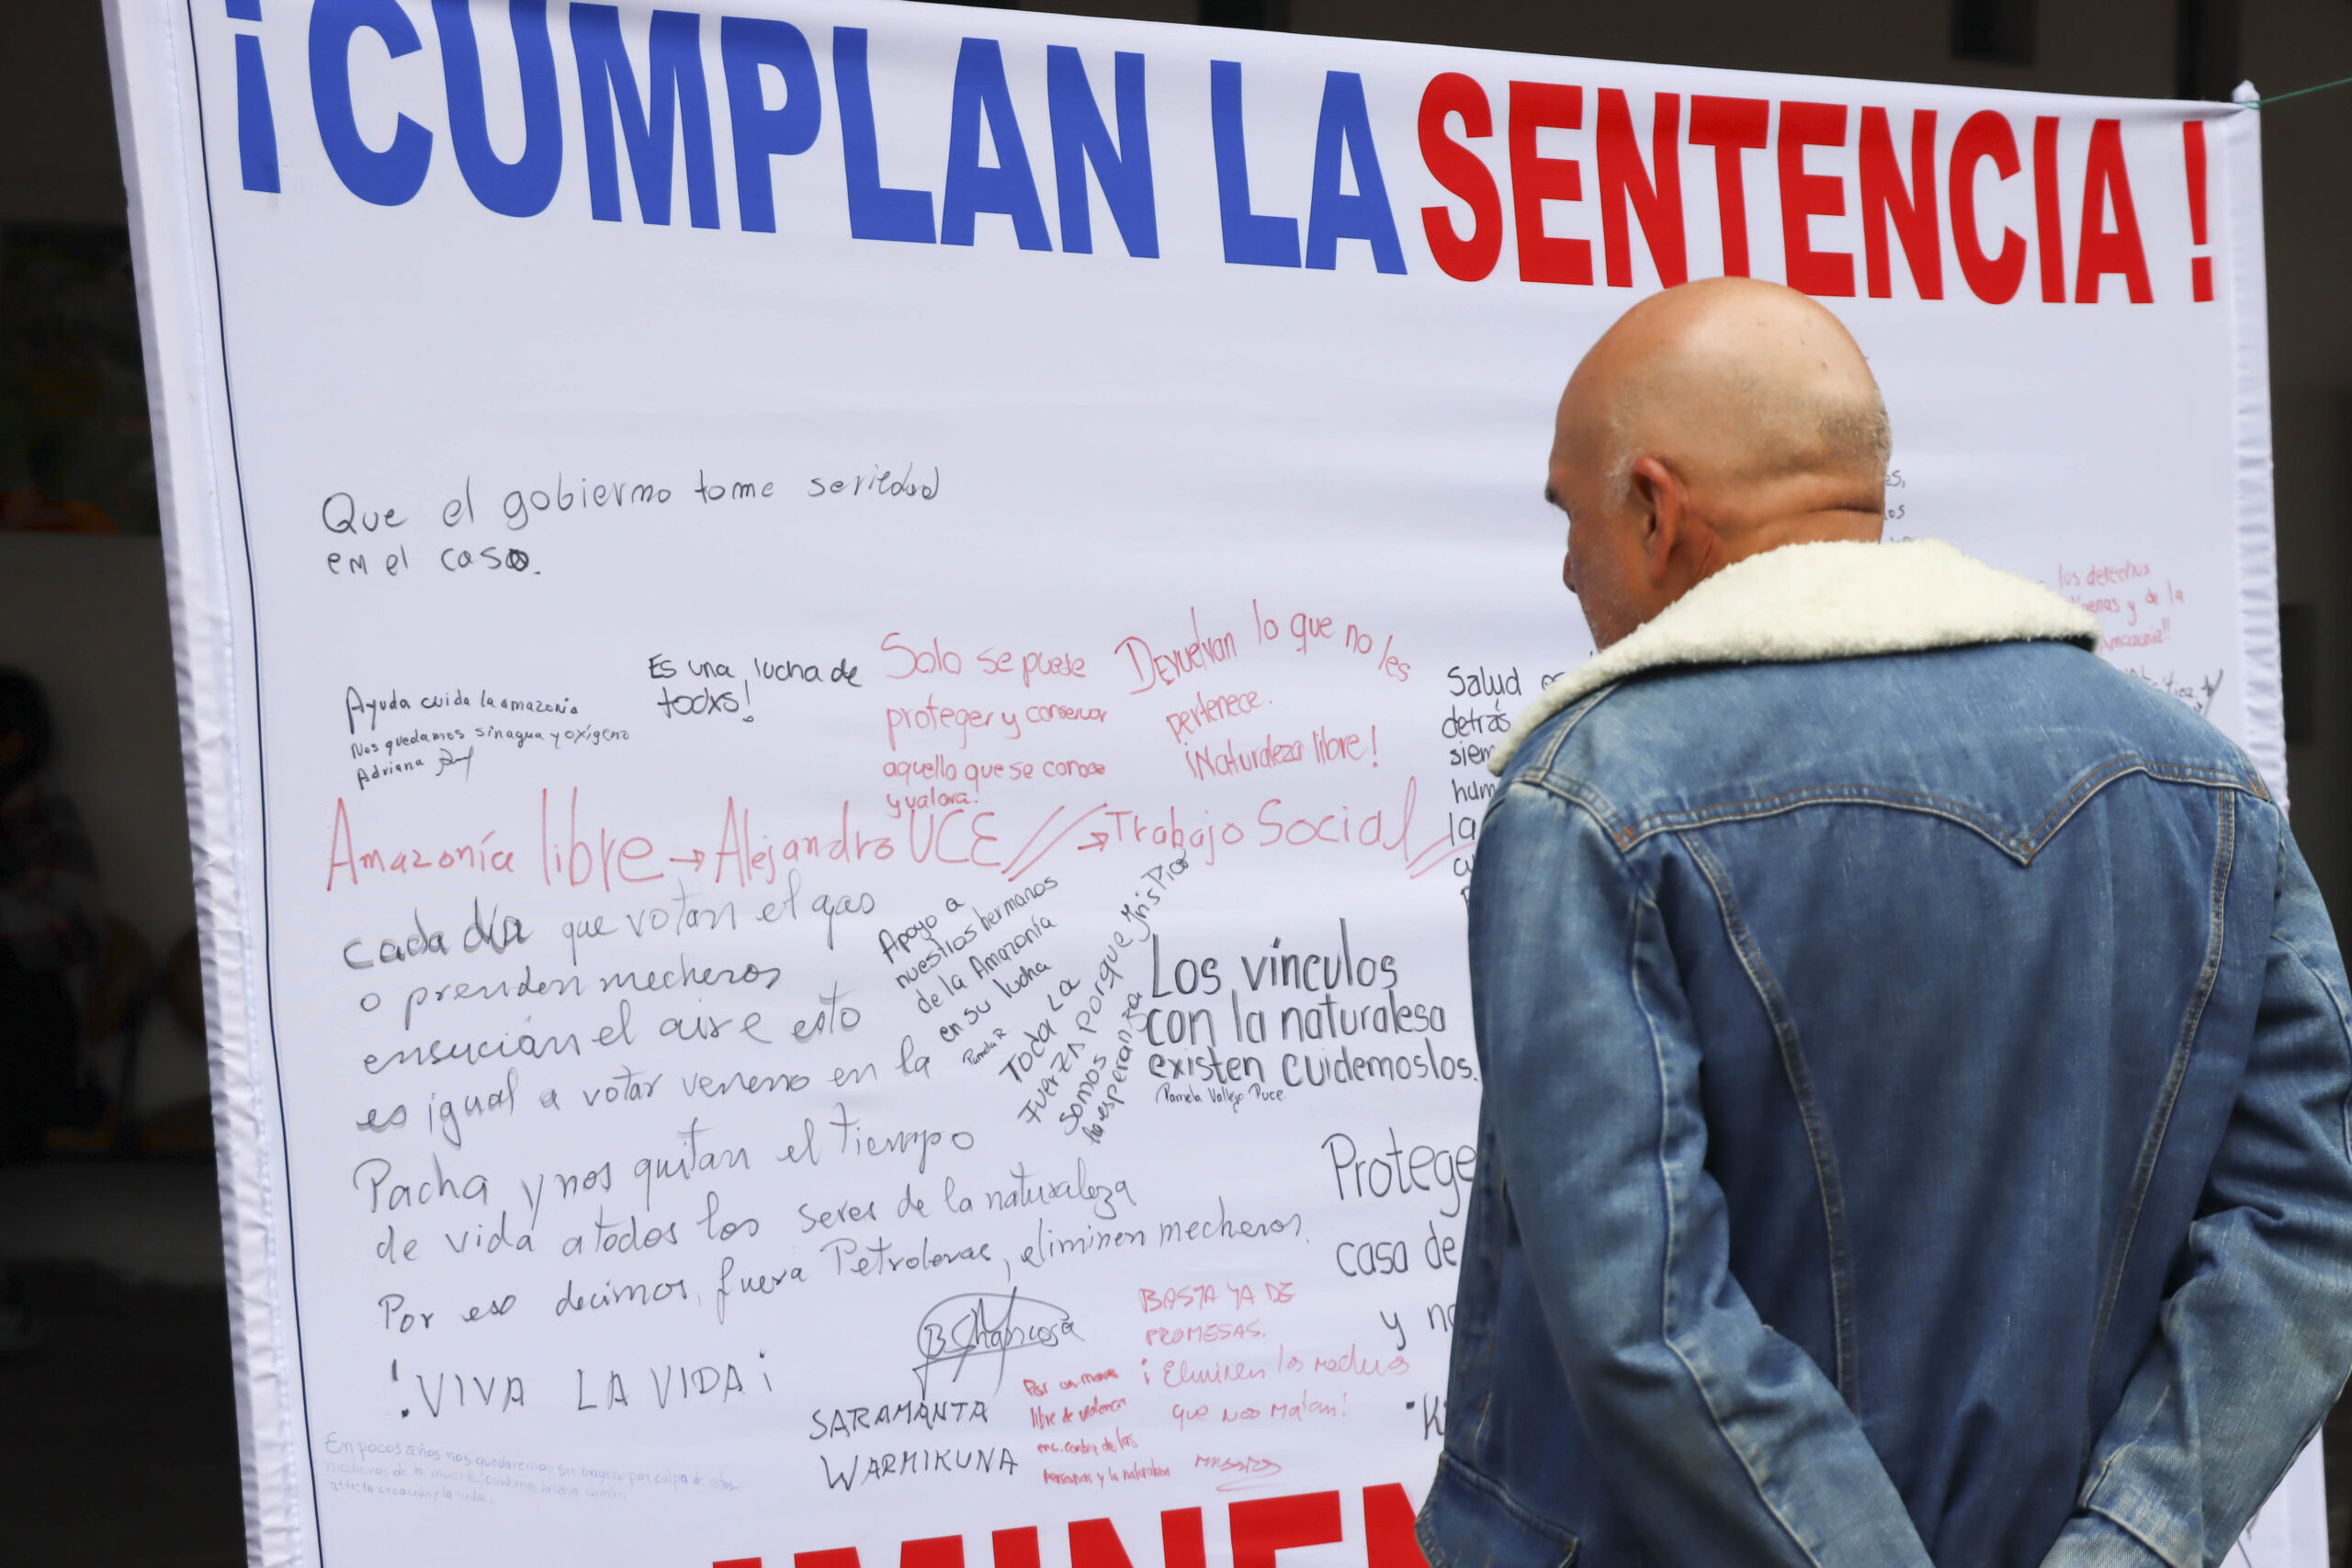 ¡CUMPLAN LA SENTENCIA!
Que el gobierno tome seriedad
en el caso.
Ayuda cuida la amazonia
Nos quedamos sin agua y oxígeno
Adriana
Es una lucha de
todxs!
Solo se puede
proteger y conservar
aquello que se conoce
y valora!
Devuelvan lo que no les
pertenece.
¡Naturaleza libre!
Salud
detrás
siem
hum
la
los derechos
y de la
Amazonia!!
Amazonía libre → Alejandro UCE // → Trabajo Social
cada día que votan el gas
o prenden mecheros
ensucian el aire esto
es igual a votar veneno en la
Pacha y nos quitan el tiempo
de vida a todos los seres de la naturaleza
Por eso decimos, fuera Petroleras, eliminen mecheros.
!VIVA LA VIDA¡
B Chancosa
SARAMANTA
WARMIKUNA
Apoyo a
nuestros hermanos
de la Amazonía
en su lucha
Pamela R.
Toda la
fuerza porque Iris Pico
somos
la esperanza
Los vínculos
con la naturalesa
existen cuidemoslos.
Pamela Vallejo Puce.
Protege
casa de
y no
BASTA YA DE
PROMESAS.
¡Eliminen los mecheros
que nos matan!
Por un mundo
libre de violencia
en contra de las
personas y la naturaleza
En pocos años nos quedaremos sin oxigeno por culpa de estos
mecheros de la muerte, cuidemos la casa común
MINEN